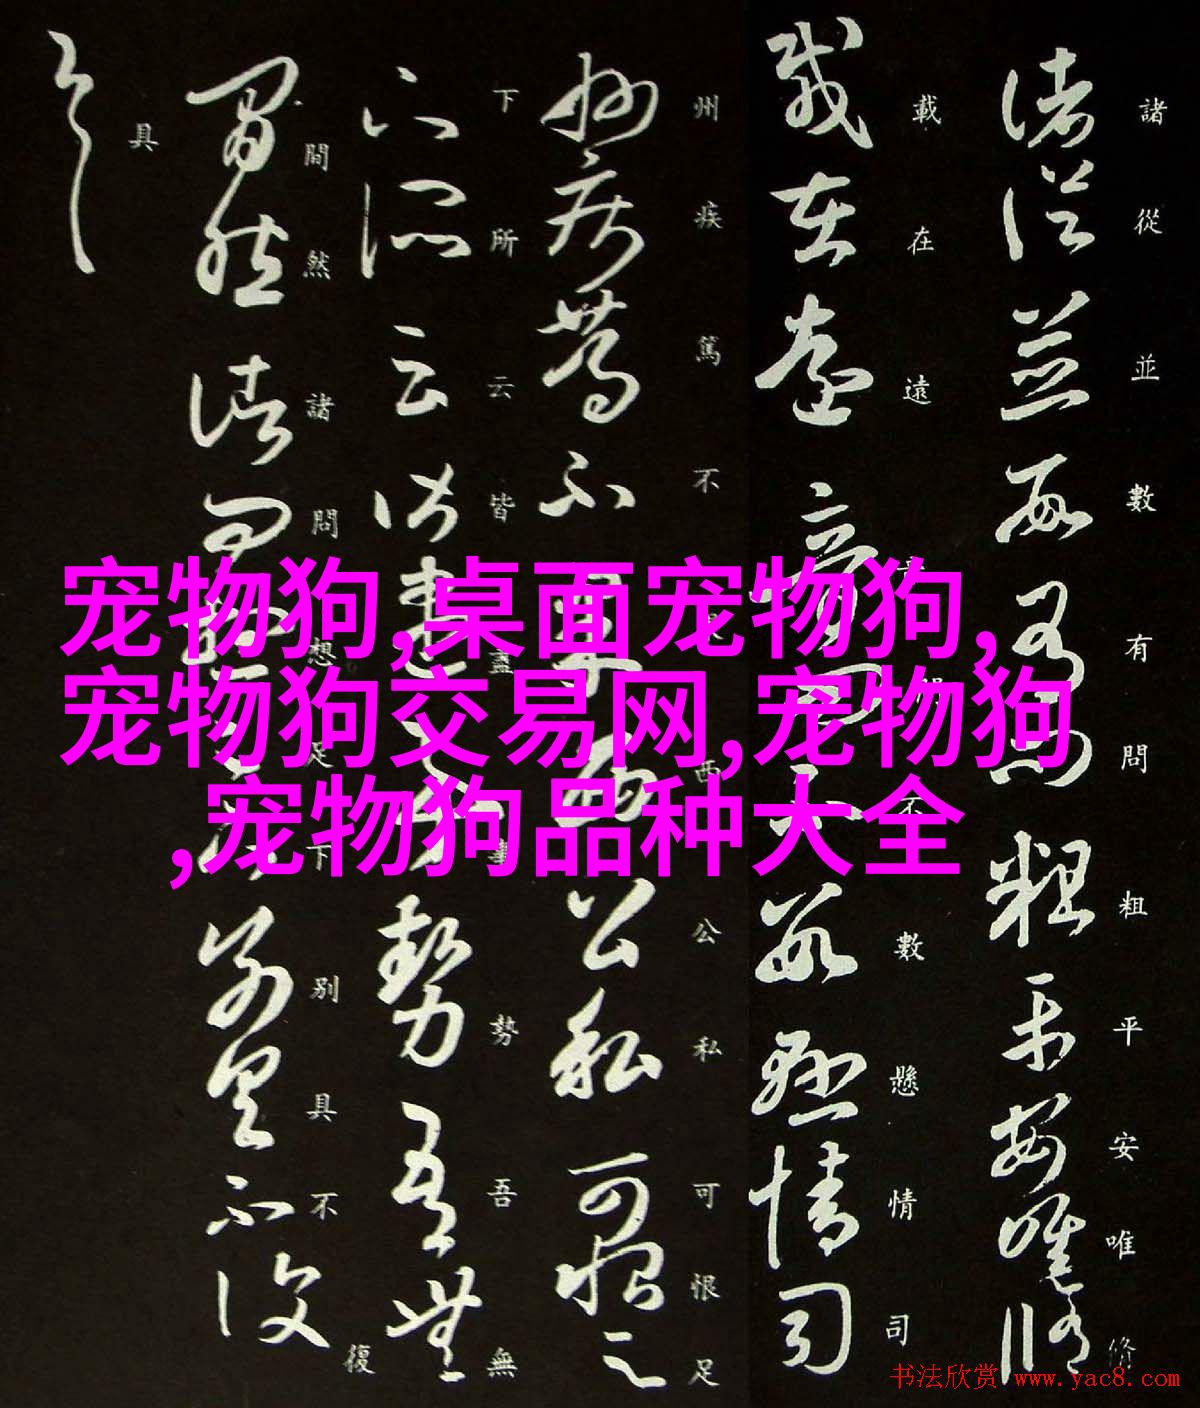 諸從並數有問粗平安唯修
載在遠音問不數懸情司
州疾篤不果西公私可恨足
下所云皆盡事勢吾無
間然諸問想足下別具不復
具
宠物狗,桌面宠物狗,
宠物狗交易网,宠物狗
,宠物狗品种大全
书法欣赏 www.yac8.com